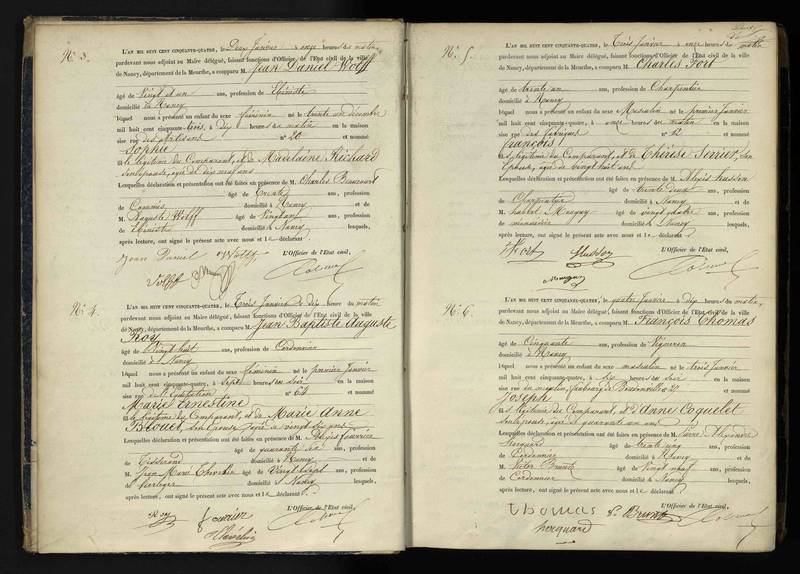 N° 3.
L'AN MIL HUIT CENT CINQUANTE-QUATRE, le Deux Janvier à onze heures du matin
pardevant nous adjoint au Maire délégué, faisant fonctions d'Officier de l'Etat civil de la ville
de Nancy, département de la Meurthe, a comparu M. Jean Daniel Wolff
âgé de Vingt et un ans, profession de Ebéniste
domicilié à Nancy
lequel nous a présenté un enfant du sexe féminin né le trente un décembre
mil huit cent cinquante-trois, à dix heures du matin en la maison
sise rue des artisans n° 20 et nommé
Sophie
et légitime du Comparant, et de Madelaine Richard
son Epouse, agée de dix neuf ans
Lesquelles déclaration et présentation ont été faites en présence de M. Charles
âgé de trente ans, profession
de Commis domicilié à Nancy et de
M. Auguste Wolff âgé de Vingt ans, profession
de Ebéniste domicilié à Nancy lesquels,
après lecture, ont signé le présent acte avec nous et le déclarant.
L'Officier de l'Etat civil,
Jean Daniel Wolff
Wolff
N° 4.
L'AN MIL HUIT CENT CINQUANTE-QUATRE, le Trois Janvier à dix heures du matin
pardevant nous adjoint au Maire délégué, faisant fonctions d'Officier de l'Etat civil de la ville
de Nancy, département de la Meurthe, a comparu M. Jean Baptiste Auguste
Roy
âgé de Vingt huit ans, profession de Cordonnier
domicilié à Nancy
lequel nous a présenté un enfant du sexe féminin né le premier Janvier
mil huit cent cinquante-quatre, à sept heures du soir en la maison
sise rue n° et nommé
Marie Ernestine
et légitime du Comparant, et de Marie Anne
son Epouse agée de vingt six ans
Lesquelles déclaration et présentation ont été faites en présence de M. Alexis fourrier
âgé de quarante six ans, profession
de Tisserand domicilié à Nancy et de
M. Jean Marie âgé de Vingt sept ans, profession
de Horloger domicilié à Nancy lesquels,
après lecture, ont signé le présent acte avec nous et le déclarant.
L'Officier de l'Etat civil,
Roy fourrier
N° 5.
L'AN MIL HUIT CENT CINQUANTE-QUATRE, le Trois Janvier à onze heures du matin
pardevant nous adjoint au Maire délégué, faisant fonctions d'Officier de l'Etat civil de la ville
de Nancy, département de la Meurthe, a comparu M. Charles Fort
âgé de trente un ans, profession de Charpentier
domicilié à Nancy
lequel nous a présenté un enfant du sexe Masculin né le premier Janvier
mil huit cent cinquante-quatre, à onze heures du matin en la maison
sise rue des fabriques n° 12 et nommé
françois
et légitime du Comparant, et de Thérèse Ferrier, son
Epouse, agée de vingt huit ans
Lesquelles déclaration et présentation ont été faites en présence de M. Alexis husson
âgé de trente deux ans, profession
de Charpentier domicilié à Nancy et de
M. âgé de vingt quatre ans, profession
de domicilié à Nancy lesquels,
après lecture, ont signé le présent acte avec nous et le déclarant.
L'Officier de l'Etat civil,
Fort Husson
N° 6.
L'AN MIL HUIT CENT CINQUANTE-QUATRE, le quatre Janvier à dix heures du matin,
pardevant nous adjoint au Maire délégué, faisant fonctions d'Officier de l'Etat civil de la ville
de Nancy, département de la Meurthe, a comparu M. François Thomas
âgé de Cinquante ans, profession de Vigneron
domicilié à Nancy
lequel nous a présenté un enfant du sexe masculin né le trois Janvier
mil huit cent cinquante-quatre, à six heures du soir en la maison
sise rue faubourg de n° 27 et nommé
Joseph
et légitime du Comparant, et d'Anne Coquelet
son Epouse agée de quarante un ans
Lesquelles déclaration et présentation ont été faites en présence de M. Pierre Alexandre
Hocquard âgé de trente cinq ans, profession
de Cordonnier domicilié à Nancy et de
M. Victor âgé de Vingt neuf ans, profession
de Cordonnier domicilié à Nancy lesquels,
après lecture, ont signé le présent acte avec nous et le déclarant.
L'Officier de l'Etat civil,
Thomas
hocquard